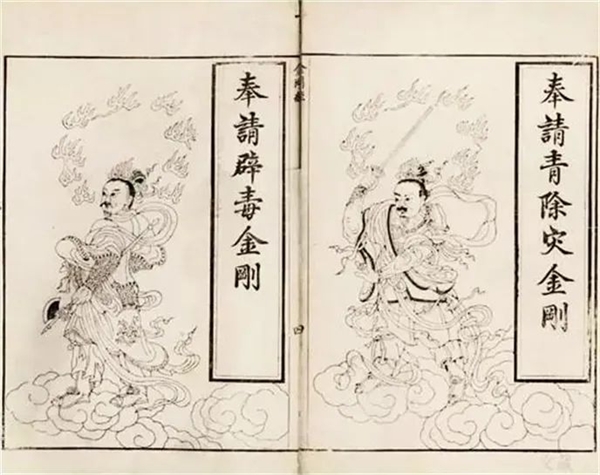 奉請青除灾金剛
金剛經
四
奉請辟毒金剛